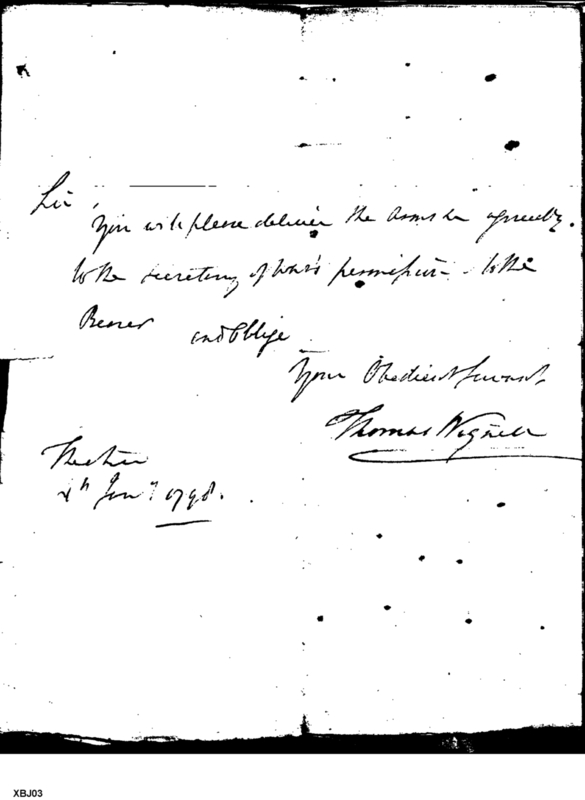 Sir,
You will please deliver the Arms &c agreeably
to the Secretary of War's permission - to the
Bearer and Oblige
Your Obedient Servant,
Thomas Wignell
Theatre
4th Jany 1798.
XBJ03